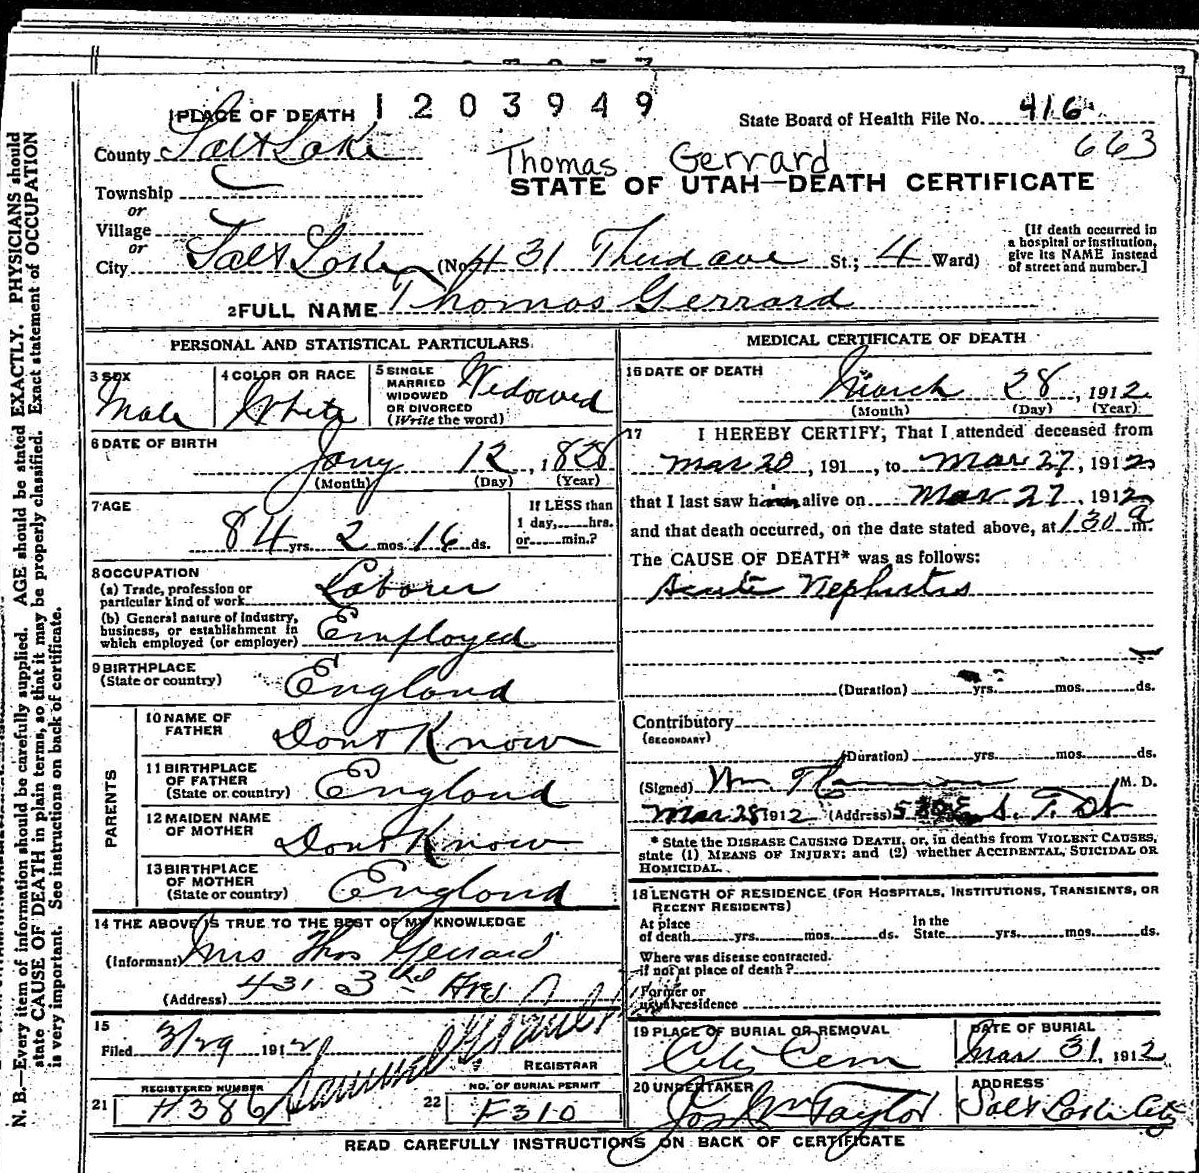 1 PLACE OF DEATH 1203949
State Board of Health File No. 416
663
County Salt Lake
Thomas Gerrard
STATE OF UTAH—DEATH CERTIFICATE
Township
or
Village
or
City Salt Lake (No. 431 Third ave St.; 4 Ward)
[If death occurred in
a hospital or institution,
give its NAME instead
of street and number.]
2 FULL NAME Thomas Gerrard
PERSONAL AND STATISTICAL PARTICULARS
3 SEX
Male
4 COLOR OR RACE
White
5 SINGLE
MARRIED
WIDOWED
OR DIVORCED
(Write the word)
Widowed
6 DATE OF BIRTH
Jany 12, 1828
(Month) (Day) (Year)
7 AGE
84 yrs. 2 mos. 16 ds.
If LESS than
1 day,.....hrs.
or.....min.?
8 OCCUPATION
(a) Trade, profession or
particular kind of work Laborer
(b) General nature of industry,
business, or establishment in
which employed (or employer) Employed
9 BIRTHPLACE
(State or country) England
PARENTS
10 NAME OF
FATHER Dont Know
11 BIRTHPLACE
OF FATHER
(State or country) England
12 MAIDEN NAME
OF MOTHER Dont Know
13 BIRTHPLACE
OF MOTHER
(State or country) England
14 THE ABOVE IS TRUE TO THE BEST OF MY KNOWLEDGE
(Informant) Mrs Thos Gerrard
(Address) 431 3rd Ave
15
Filed 3/29 1912
REGISTRAR
REGISTERED NUMBER
21 H386
NO. OF BURIAL PERMIT
22 F310
MEDICAL CERTIFICATE OF DEATH
16 DATE OF DEATH
March 28, 1912
(Month) (Day) (Year)
17 I HEREBY CERTIFY, That I attended deceased from
Mar 20, 191 , to Mar 27, 1912
that I last saw him alive on Mar 27, 1912
and that death occurred, on the date stated above, at 130 a m.
The CAUSE OF DEATH* was as follows:
Acute Nephritis
(Duration) yrs. mos. ds.
Contributory
(SECONDARY)
(Duration) yrs. mos. ds.
(Signed) Wm M. D.
Mar 28 1912 (Address)
* State the DISEASE CAUSING DEATH, or, in deaths from VIOLENT CAUSES,
state (1) MEANS OF INJURY; and (2) whether ACCIDENTAL, SUICIDAL OR
HOMICIDAL.
18 LENGTH OF RESIDENCE (FOR HOSPITALS, INSTITUTIONS, TRANSIENTS, OR
RECENT RESIDENTS)
At place
of death yrs. mos. ds.
In the
State yrs. mos. ds.
Where was disease contracted.
if not at place of death?
Former or
usual residence
19 PLACE OF BURIAL OR REMOVAL
City Cem
DATE OF BURIAL
Mar 31, 1912
20 UNDERTAKER
Jos Wm Taylor
ADDRESS
Salt Lake City
READ CAREFULLY INSTRUCTIONS ON BACK OF CERTIFICATE
N. B.—Every item of information should be carefully supplied. AGE should be stated EXACTLY. PHYSICIANS should
state CAUSE OF DEATH in plain terms, so that it may be properly classified. Exact statement of OCCUPATION
is very important. See instructions on back of certificate.